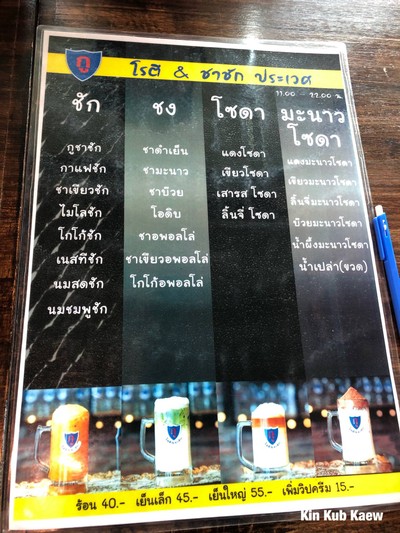 กู
โรตี & ชาชัก ประเวศ
11.00 - 22.00 น.
ชัก
กูชาชัก
กาแฟชัก
ชาเขียวชัก
ไมโลชัก
โกโก้ชัก
เนสทีชัก
นมสดชัก
นมชมพูชัก
ชง
ชาดำเย็น
ชามะนาว
ชาบ๊วย
โอดิบ
ชาอพอลโล่
ชาเขียวอพอลโล่
โกโก้อพอลโล่
โซดา
แดงโซดา
เขียวโซดา
เสารส โซดา
ลิ้นจี่ โซดา
มะนาว
โซดา
แดงมะนาวโซดา
เขียวมะนาวโซดา
ลิ้นจี่มะนาวโซดา
บ๊วยมะนาวโซดา
น้ำผึ้งมะนาวโซดา
น้ำเปล่า(ขวด)
ร้อน 40.- เย็นเล็ก 45.- เย็นใหญ่ 55.- เพิ่มวิปครีม 15.-
Kin Kub Kaew